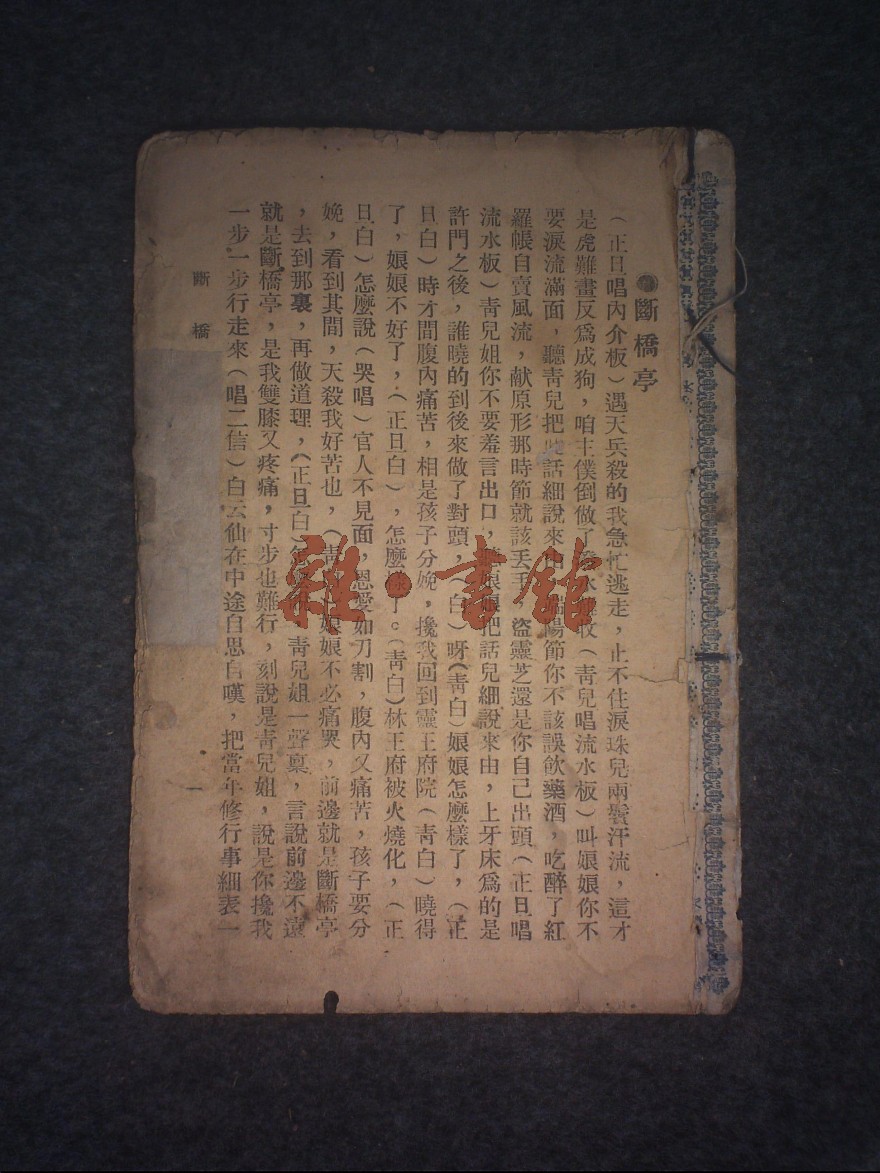 斷橋亭
（正旦唱內介板）遇天兵殺的我急忙逃走，止不住淚珠兒兩鬢汗流，這才
是虎難畫反爲成狗，咱主僕倒做了水收（青兒唱流水板）叫娘娘你不
要淚流滿面，聽青兒把話細說來由，端陽節你不該誤飲藥酒，吃醉了紅
羅帳自賣風流，献原形那時節就該丢手，盜靈芝還是你自己出頭（正旦唱
流水板）青兒姐你不要羞言出口，娘娘把話兒細說來由，上牙床爲的是
許門之後，誰曉的到後來做了對頭，（白）呀（青白）娘娘怎麼樣了，（正
旦白）時才間腹內痛苦，相是孩子分娩，攙我回到靈王府院（青白）曉得
了，娘娘不好了，（正旦白），怎麼樣了。（青白）林王府被火燒化，（正
旦白）怎麼說（哭唱）官人不見面，恩愛如刀割，腹內又痛苦，孩子要分
娩，看到其間，天殺我好苦也，（青白）娘娘不必痛哭，前邊就是斷橋亭
，去到那裏，再做道理，（正旦白）青兒姐一聲稟，言說前邊不遠
就是斷橋亭，是我雙膝又疼痛，寸步也難行，刻說是青兒姐，說是你攙我
一步一步行走來（唱二信）白云仙在中途自思自嘆，把當年修行事細表一
斷橋
一
雜·書館